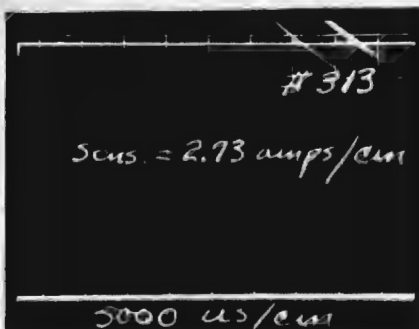 #313
sens. = 2.73 amps/cm
5000 us/cm